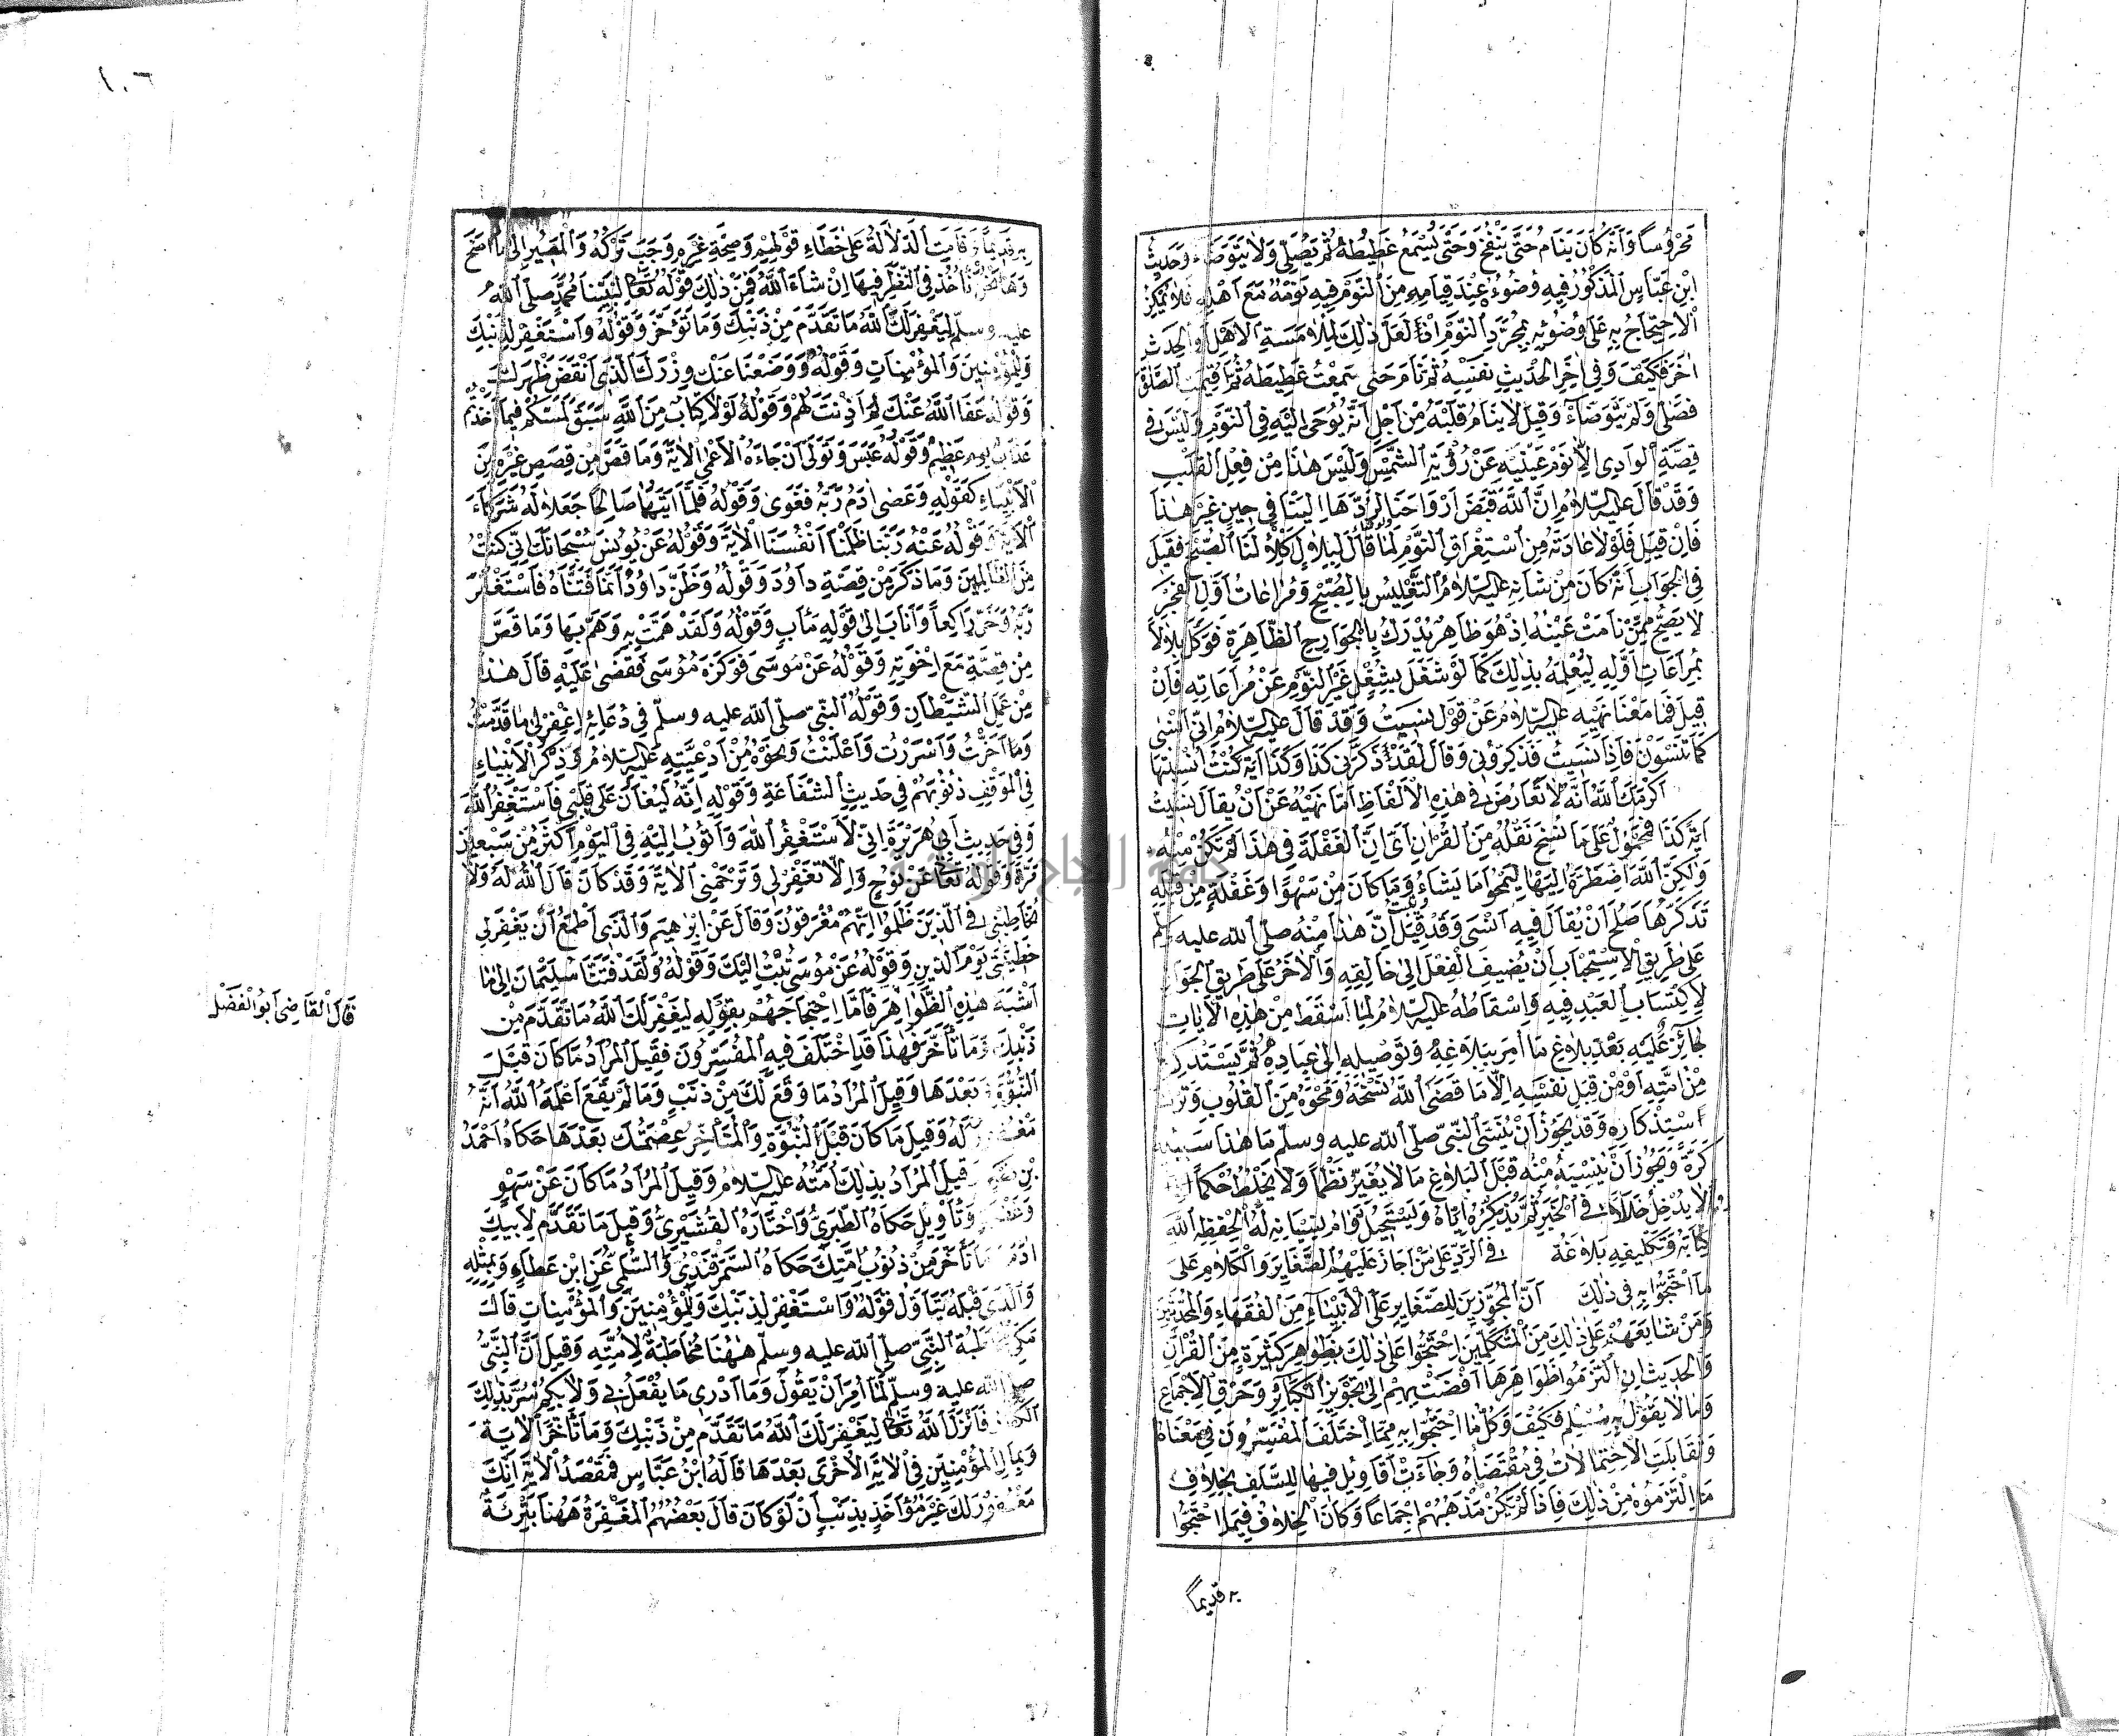 محروسا وانه كان ينام حتى ينفخ وحتى يسمع غطيطه ثم يصلى ولا يتوضاء وحديث
ابن عباس المذكور فيه وضوءه عند قيامه من النوم فيه نومه مع اهله فلا يمكن
الاحتجاج به على وضوئه بمجرد النوم اذ لعل ذلك لملامسة الاهل والحدث
اخر فكيف وفى اخر الحديث نفسه ثم نام حتى سمعت غطيطه ثم اقيمت الصلوة
فصلى ولم يتوضاء وقيل لا ينام قلبه من اجل انه يوحى اليه فى النوم وليس فى
قصة الوادى الا نوم عينيه عن رؤية الشمس وليس هذا من فعل القلب
وقد قال عليه السلام ان الله قبض ارواحنا لردها الينا فى حين غير هذا
فان قيل فلولا عادته من استغراق النوم لما قال لبلال اكلأ لنا الصبح فقيل
فى الجواب انه كان من شانه عليه السلام التغليس بالصبح ومراعات اول الفجر
لا يصح ممن نامت عينه اذ هو ظاهر يدرك بالجوارح الظاهرة فوكل بلالا
بمراعات اوله ليعلمه بذلك كما لو شغل بشغل غير النوم عن مراعاته فان
قيل فما معنا نهيه عليه السلام عن قول نسيت وقد قال عليه السلام انى انسى
كما تنسون فاذا نسيت فذكرونى وقال لقد ذكرنى كذا وكذا اية كنت انسيتها
اكرمك الله انه لا تعارض فى هذه الالفاظ اما نهيه عن ان يقال نسيت
اية كذا فمحمول على ما نسخ نقله من القران اى ان الغفلة فى هذا لم تكن منه
ولكن الله اضطره اليها ليمحوا ما يشاء وما كان من سهو او غفلة من قبله
تذكرها صلح ان يقال فيه انسى وقد قيل ان هذا منه صلى الله عليه وسلم
على طريق الاستحباب ان يضيف الفعل الى خالقه والاخر على طريق الجواز
لاكتساب العبد فيه واسقاطه عليه السلام لما اسقط من هذه الايات
جائز عليه بعد بلاغ ما امر ببلاغه وتوصيله الى عباده ثم يستذكرها
من امته او من قبل نفسه الا ما قضى الله نسخه ومحوه من القلوب وترك
استذكاره وقد يجوز ان ينسى النبى صلى الله عليه وسلم ما هذا سبيله
كرة ويجوز ان ينسيه منه قبل البلاغ ما لا يغير نظما ولا يخلط حكما
لا يدخل خللا فى الخبر ثم يذكره اياه ويستحيل دوام نسيانه له لحفظ الله
كتابه وتكليفه بلاغه فى الرد على من اجاز عليهم الصغاير والكلام على
ما احتجوا به فى ذلك ان المجوزين للصغاير على الانبياء من الفقهاء والمحدثين
ومن شايعهم على ذلك من المتكلمين احتجوا على ذلك بظواهر كثيرة من القران
والحديث ان التزموا ظواهرها افضت بهم الى تجويز الكبائر وخرق الاجماع
وما لا يقول به مسلم فكيف وكل ما احتجوا به مما اختلف المفسرون فى معناه
وتقابلت الاحتمالات فى مقتضاه وجاءت اقاويل فيها للسلف بخلاف
ما التزموه من ذلك فاذا لم يكن مذهبهم اجماعا وكان الخلاف فيما احتجوا
به قديما
١٠٦
به قديما وقامت الدلالة على خطاء قولهم وصحة غيره وجب تركه والمصير الى ما صح
وها نحن ناخذ فى النظر فيها ان شاء الله فمن ذلك قوله تعالى لنبينا محمد صلى الله
عليه وسلم ليغفر لك الله ما تقدم من ذنبك وما تؤخر وقوله واستغفر لذنبك
وللمؤمنين والمؤمنات وقوله ووضعنا عنك وزرك الذى انقض ظهرك
وقوله عفا الله عنك لم اذنت لهم وقوله لولا كتاب من الله سبق لمسكم فيما اخذتم
عذاب يوم عظيم وقوله عبس وتولى ان جاءه الاعمى الاية وما قص من قصص غيره من
الانبياء كقوله وعصى ادم ربه فغوى وقوله فلما اتيهما صالحا جعلا له شركاء
الاية وقوله عنه ربنا ظلمنا انفسنا الاية وقوله عن يونس سبحانك انى كنت
من الظالمين وما ذكر من قصة داود وقوله وظن داود انما فتناه فاستغفر
ربه وخر راكعا واناب الى قوله مئاب وقوله ولقد همت به وهم بها وما قص
من قصة مع اخوته وقوله عن موسى فوكزه موسى فقضى عليه قال هذا
من عمل الشيطان وقوله النبى صلى الله عليه وسلم فى دعائه اغفر لى ما قدمت
وما اخرت واسررت واعلنت ونحوه من ادعيته عليه السلام وذكر الانبياء
فى الموقف ذنوبهم فى حديث الشفاعة وقوله انه ليغان على قلبى فاستغفر الله
وفى حديث ابى هريرة انى لاستغفر الله واتوب اليه فى اليوم اكثر من سبعين
مرة وقوله تعالى عن نوح والا تغفر لى وترحمنى الاية وقد كان قال الله له ولا
تخاطبنى فى الذين ظلموا انهم مغرقون وقال عن ابرهيم والذى اطمع ان يغفر لى
خطيئتى يوم الدين وقوله عن موسى تبت اليك وقوله ولقد فتنا سليمان الى ما
اشبه هذه الظواهر فاما احتجاجهم بقوله ليغفر لك الله ما تقدم من
ذنبك وما تاخر فهذا قد اختلف فيه المفسرون فقيل المراد ما كان قبل
النبوة وبعدها وقيل المراد ما وقع لك من ذنب وما لم يقع اعلمه الله انه
مغفور له وقيل ما كان قبل النبوة والمتأخر عصمتك بعدها حكاه احمد
بن نصر وقيل المراد بذلك امته عليه السلام وقيل المراد ما كان عن سهو
وغفلة وتأويل حكاه الطبرى واختاره القشيرى وقيل ما تقدم لابيك
ادم وما تأخر من ذنوب امتك حكاه السمرقندى والسلمى عن ابن عطاء وبمثله
والذى قبله يتاول قوله واستغفر لذنبك وللمؤمنين والمؤمنات قال
مكى مخاطبة النبى صلى الله عليه وسلم ههنا مخاطبة لامته وقيل ان النبى
صلى الله عليه وسلم لما امر ان يقول وما ادرى ما يفعل بى ولا بكم سر بذلك
الكفار فانزل الله تعالى ليغفر لك الله ما تقدم من ذنبك وما تأخر الاية
وبمال المؤمنين فى الاية الاخرى بعدها قاله ابن عباس فمقصد الاية انك
مغفور لك غير مؤاخذ بذنب ان لو كان قال بعضهم المغفرة ههنا تبرئة
قال القاضى ابو الفضل